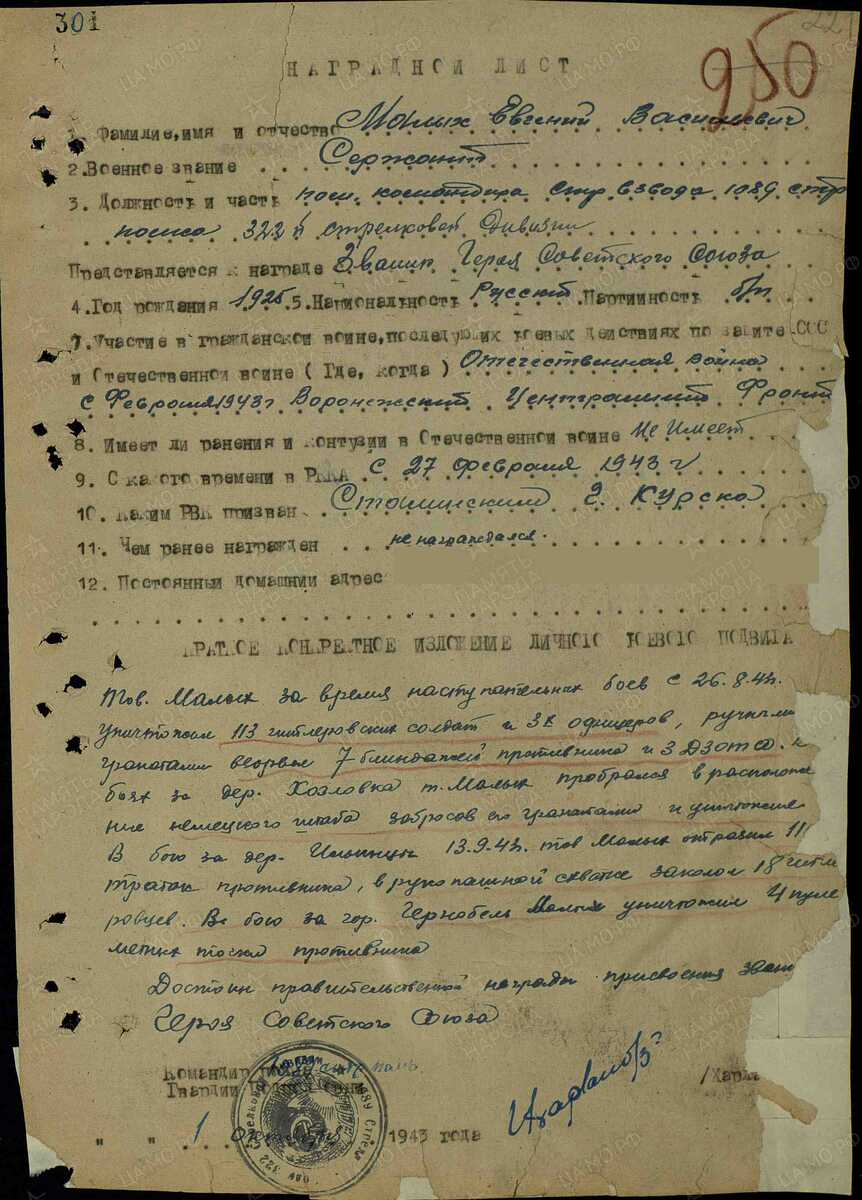 301
227
950
НАГРАДНОЙ ЛИСТ
1. Фамилие, имя и отчество Малых Евгений Васильевич
2. Военное звание Сержант
3. Должность и часть пом. командира стр взвода 1089 стр
полка 322й стрелковой Дивизии
Представляется к награде Звание Героя Советского Союза
4. Год рождения 1925 5. Национальность Русский Партийность б/п
7. Участие в гражданской войне, последующих боевых действиях по защите СССР
и Отечественной войне (Где, когда) Отечественная война
с Февраля 1943г Воронежский Центральный Фронт
8. Имеет ли ранения и контузии в Отечественной войне Не Имеет
9. С какого времени в РККА с 27 Февраля 1943 г
10. Каким РВК призван Сталинским г. Курска
11. Чем ранее награжден не награждался.
12. Постоянный домашний адрес
КРАТКОЕ КОНКРЕТНОЕ ИЗЛОЖЕНИЕ ЛИЧНОГО БОЕВОГО ПОДВИГА
Тов. Малых за время наступательных боев с 26.8.43г.
уничтожил 113 гитлеровских солдат и 3х офицеров, ручными
гранатами взорвал 7 блиндажей противника и 3 ДЗОТа. в
боях за дер. Хозловка т. Малых пробрался в расположе
ние немецкого штаба забросов его гранатами и уничтожил
В бою за дер. Ильинцы 13.9.43г. тов Малых отразил 11
тратак противника, в рукопашной схватке заколол 18 гитле
ровцев. В бою за гор. Чернобель Малых уничтожил 4 пуле
метных точки противника
Достоин правительственной награды присвоения звани
Героя Советского Союза
Командир 1089 стр. полка
Гвардии
/Харл
" " 1 октября 1943 года
1089 Стрелковый 322